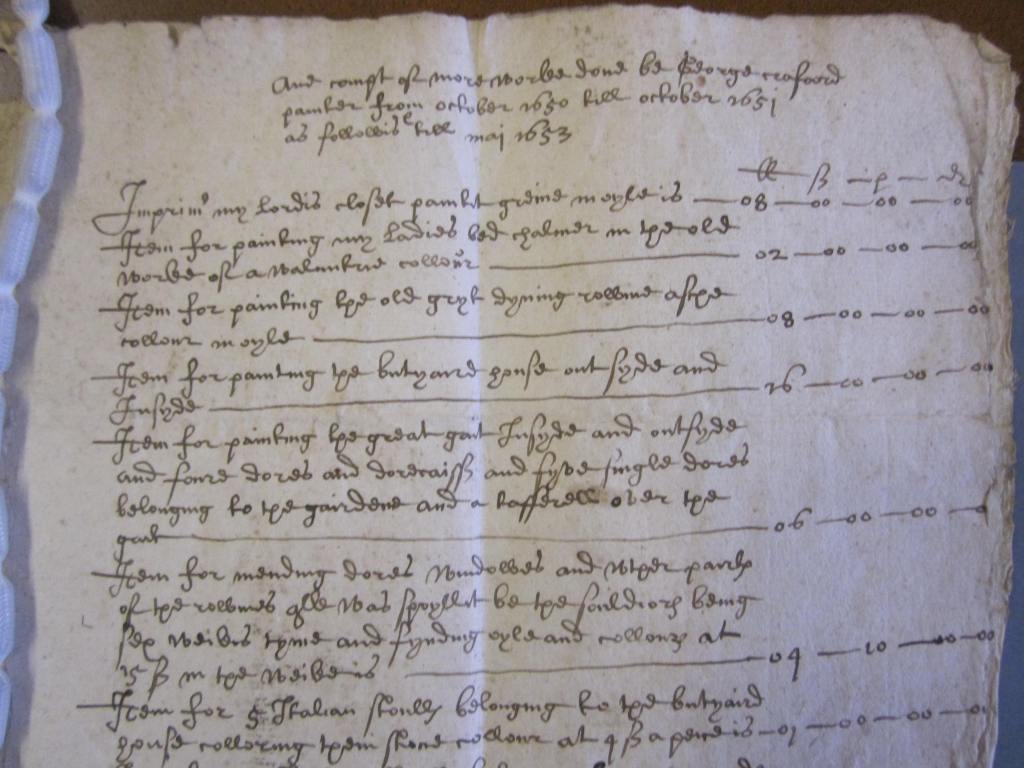 And compt of more worke done be George crafoord
painter from october 1650 till october 1651
as followis till maj 1653
lb ß p dr
Imprim my Lordis closet paintit greine in oyle is — 08 — 00 — 00 — 00
Item for painting my Ladies bed chalmer in the old
worke of a walnuttrie collour — 02 — 00 — 00 — 00
Item for painting the old gryt dyning rowme ashe
collour in oyle — 08 — 00 — 00 — 00
Item for painting the butyaird house out syde and
Insyde — 16 — 10 — 00 — 00
Item for painting the great gait Insyde and outsyde
and foure dores and dorecaiss and fyve single dores
belonging to the gairdene and a tafferell over the
gait — 06 — 00 — 00 — 0
Item for mending dores windowes and wther pairts
of the rowmes qlk was spoyllit be the souldiors being
sex weikis tyme and fynding oyle and collours at
15 ß in the weike is — 04 — 10 — 00 — 00
Item for 5 Italian stoulls belonging to the butyaird
house colloring them stone collour at 4 ß a peice is — 01 — 00 — 00 — 00